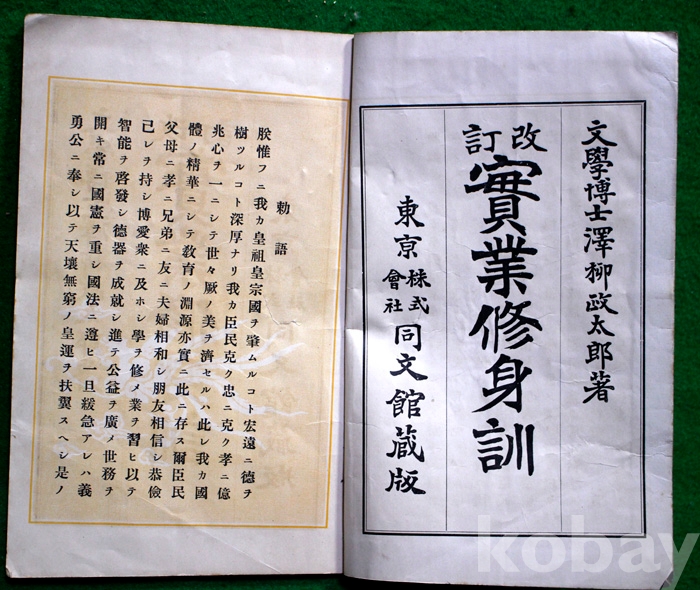 文學博士澤柳政太郎著
改訂
實業修身訓
東京株式會社同文館蔵版
勅語
朕惟フニ我カ皇祖皇宗國ヲ肇ムルコト宏遠ニ德ヲ
樹ツルコト深厚ナリ我カ臣民克ク忠ニ克ク孝ニ億
兆心ヲ一ニシテ世々厥ノ美ヲ濟セルハ此レ我カ國
體ノ精華ニシテ敎育ノ淵源亦實ニ此ニ存ス爾臣民
父母ニ孝ニ兄弟ニ友ニ夫婦相和シ朋友相信シ恭儉
己レヲ持シ博愛衆ニ及ホシ學ヲ修メ業ヲ習ヒ以テ
智能ヲ啓發シ德器ヲ成就シ進テ公益ヲ廣メ世務ヲ
開キ常ニ國憲ヲ重シ國法ニ遵ヒ一旦緩急アレハ義
勇公ニ奉シ以テ天壤無窮ノ皇運ヲ扶翼スヘシ是ノ
kobay